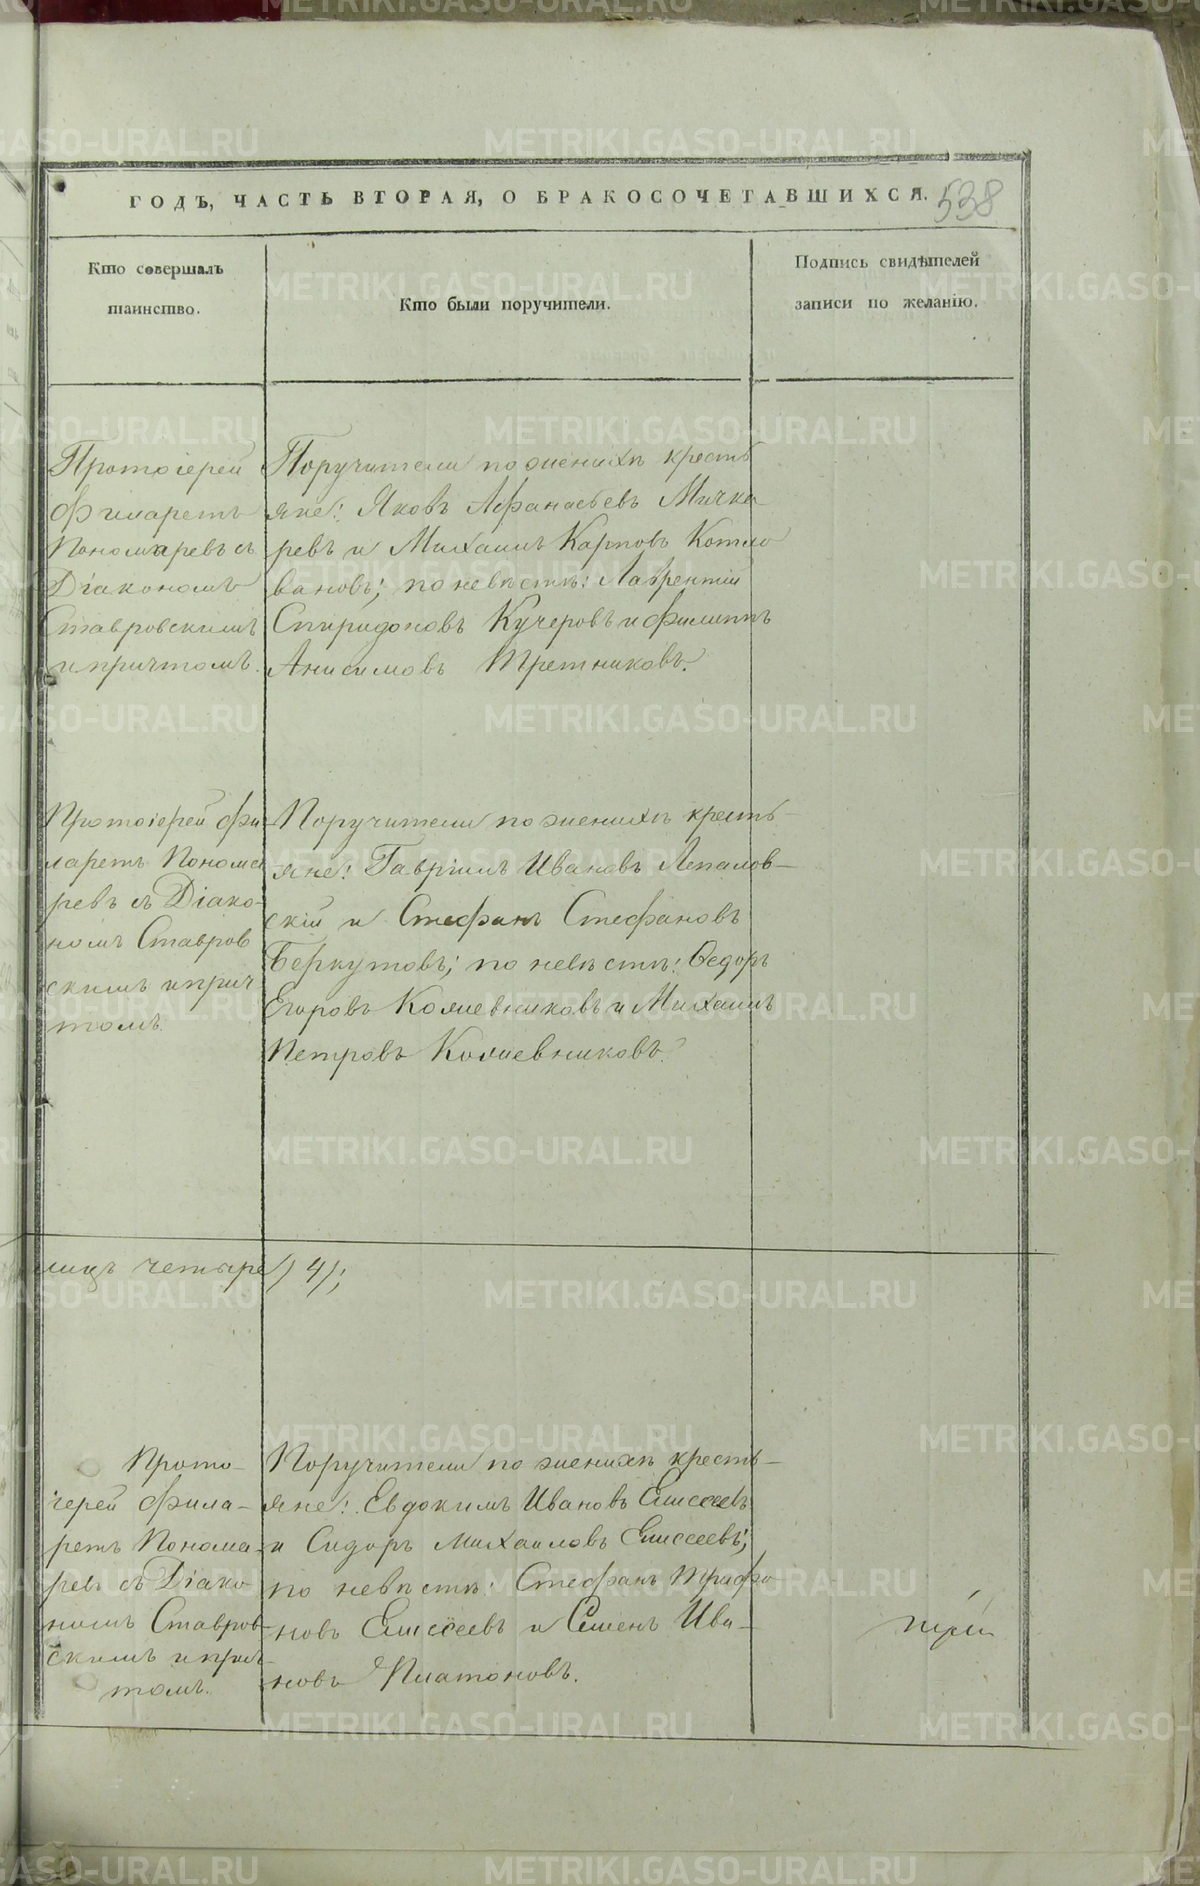 ГОДЪ, ЧАСТЬ ВТОРАЯ, О БРАКОСОЧЕТАВШИХСЯ.
538
Кто совершалъ
таинство.
Кто были поручители.
Подпись свидѣтелей
записи по желанію.
Протоіерей
Филаретъ
Пономаревъ съ
Діакономъ
Ставровскимъ
и причтомъ.
Поручители по женихѣ кресть
яне: Яковъ Афанасьевъ Мичка
ревъ и Михаилъ Карповъ Котло
вановъ; по невѣстѣ: Лаврентій
Спиридоновъ Кучеровъ и Филиппъ
Анисимовъ Третниковъ.
Протоіерей Фи
ларетъ Понома
ревъ съ Діако-
номъ Ставров
скимъ и прич
томъ
Поручители по женихѣ кресть-
яне: Гавріилъ Ивановъ Лепалов-
скій и Стефанъ Стефановъ
Беркутовъ; по невѣстѣ: Ѳедоръ
Егоровъ Кожевниковъ и Михаилъ
Петровъ Кожевниковъ.
лицъ четыре (4);
Прото-
іерей Фила-
ретъ Понома-
ревъ съ Діако-
номъ Ставров-
скимъ и прич-
томъ.
Поручители по женихѣ кресть-
яне: Евдокимъ Ивановъ Елисеевъ
и Сидоръ Михаиловъ Елисеевъ;
по невѣстѣ: Стефанъ Трифо
новъ Елисеевъ и Семенъ Ива-
новъ Платоновъ.
METRIKI.GASO-URAL.RU